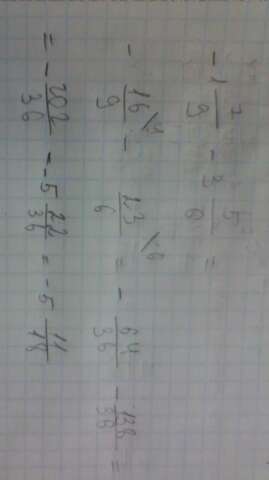 -1 7/9 - 3 5/6 =
- 16/9 \4 - 23/6 \6 = - 64/36 - 138/36 =
= - 202/36 = -5 22/36 = -5 11/18